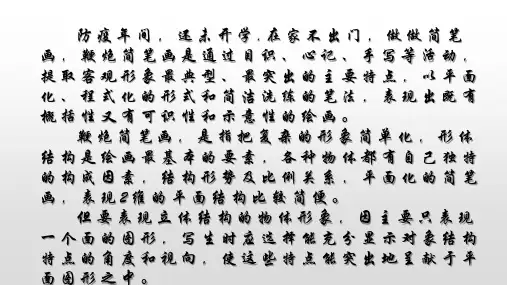 防疫年间，还未开学，在家不出门，做做简笔
画，鞭炮简笔画是通过目识、心记、手写等活动，
提取客观形象最典型、最突出的主要特点，以平面
化、程式化的形式和简洁洗练的笔法，表现出既有
概括性又有可识性和示意性的绘画。
鞭炮简笔画，是指把复杂的形象简单化，形体
结构是绘画最基本的要素，各种物体都有自己独特
的构成因素，结构形势及比例关系，平面化的简笔
画，表现2维的平面结构比较简便。
但要表现立体结构的物体形象，因主要只表现
一个面的图形，写生时应选择能充分显示对象结构
特点的角度和视向，使这些特点能突出地呈献于平
面图形之中。